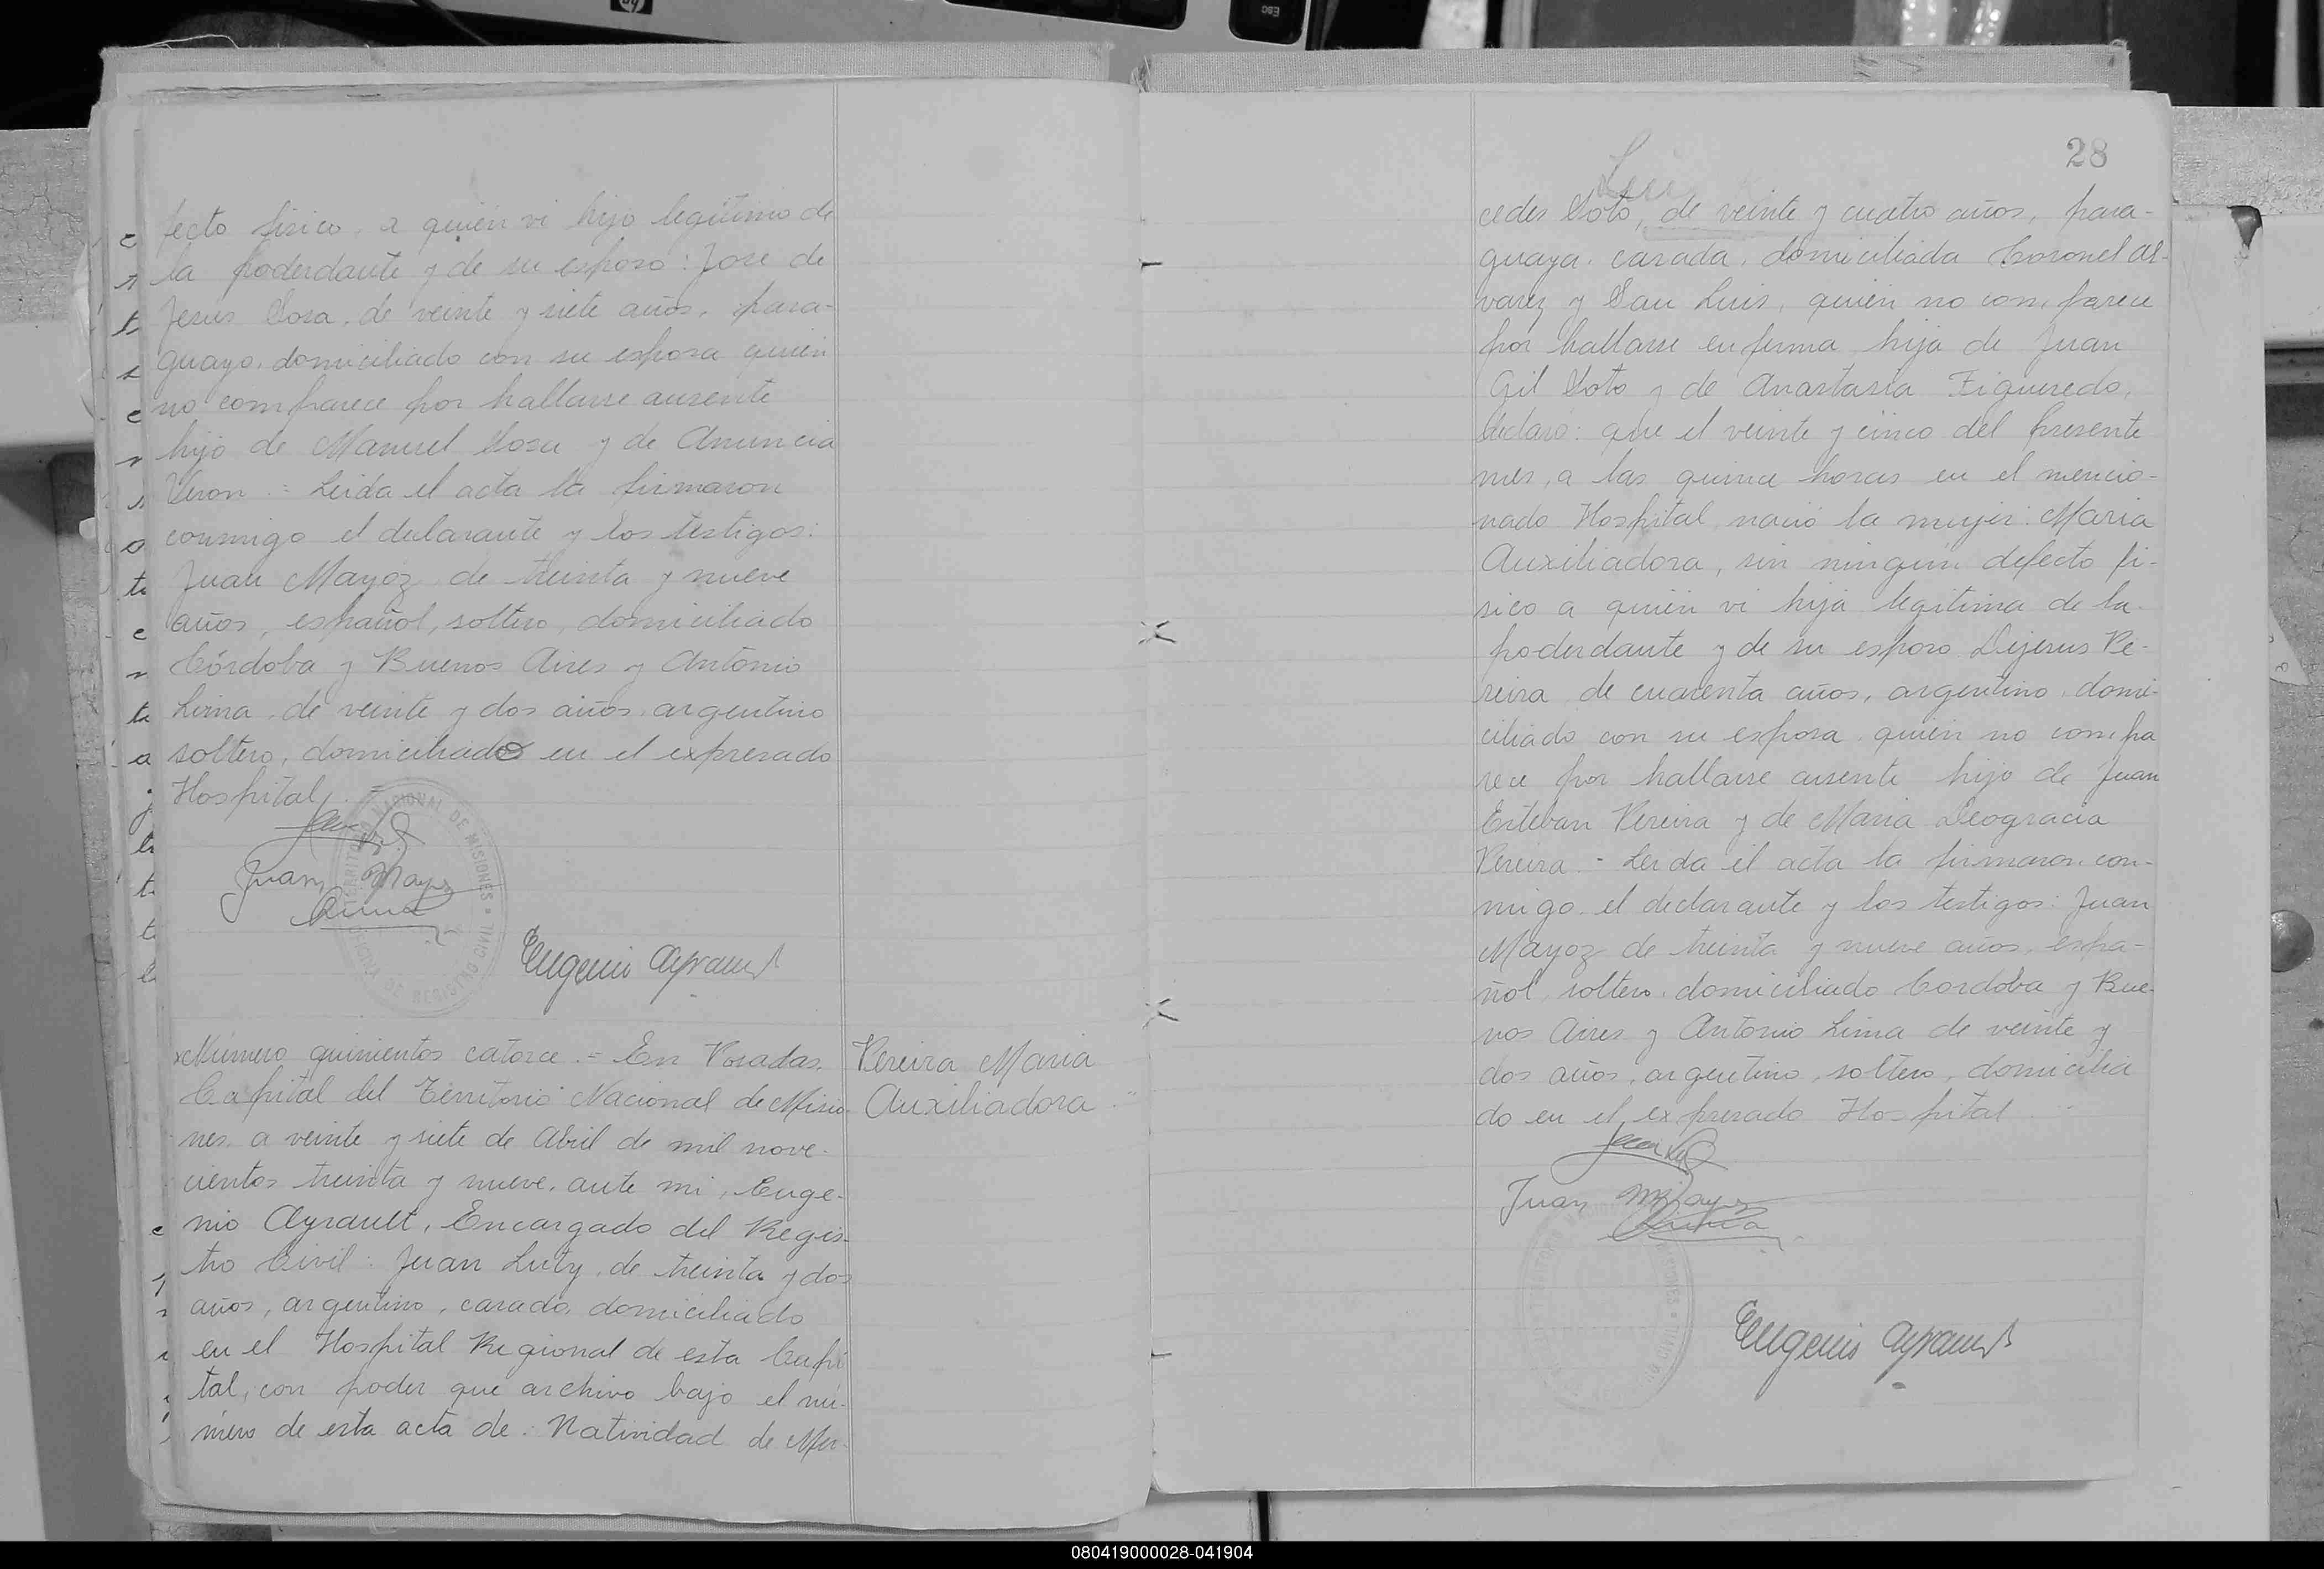 fecto físico, a quién vi hijo legítimo de
la poderdante y de su esposo: José de
Jesús Sosa, de veinte y siete años, para-
guayo, domiciliado con su esposa quién
no comparece por hallarse ausente
hijo de Manuel Sosa y de Anuncia
Veron = Leida el acta la firmaron
conmigo el declarante y los testigos:
Juan Mayoz de treinta y nueve
años, español, soltero, domiciliado
Córdoba y Buenos Aires y Antonio
Lima, de veinte y dos años, argentino
soltero, domiciliado en el expresado
Hospital. =
TERRITORIO NACIONAL DE MISIONES
OFICINA DE REGISTRO CIVIL
Juan Mayoz
Lima
Eugenio Ayrault
Número quinientos catorce. = En Posadas,
Capital del Territorio Nacional de Misio-
nes, a veinte y siete de Abril de mil nove-
cientos treinta y nueve, ante mi, Euge-
nio Ayrault, Encargado del Regis-
tro Civil: Juan Luty, de treinta y dos
años, argentino, casado, domiciliado
en el Hospital Regional de esta Capi
tal, con poder que archivo bajo el nú-
mero de esta acta de: Natividad de Mer-
Pereira Maria
Auxiliadora
28
cedes Soto, de veinte y cuatro años, para-
guaya, casada, domiciliada Coronel Al-
varez y San Luis, quién no comparece
por hallarse enferma hija de Juan
Gil Soto y de Anastasia Figueredo,
declaró: que el veinte y cinco del presente
mes, a las quince horas en el mencio-
nado Hospital, nació la mujer: Maria
Auxiliadora, sin ningún defecto fí-
sico a quién vi hija legítima de la
poderdante y de su esposo Dejesus Pe-
reira de cuarenta años, argentino, domi-
ciliado con su esposa, quién no compa
rece por hallarse ausente hijo de Juan
Esteban Pereira y de Maria Deogracia
Pereira. = Leida el acta la firmaron con-
migo, el declarante y los testigos: Juan
Mayoz de treinta y nueve años, espa-
ñol, soltero, domiciliado Cordoba y Bue-
nos Aires y Antonio Lima de veinte y
dos años, argentino, soltero, domicilia
do en el expresado Hospital
Juan Mayoz
Lima
Eugenio Ayrault
080419000028-041904